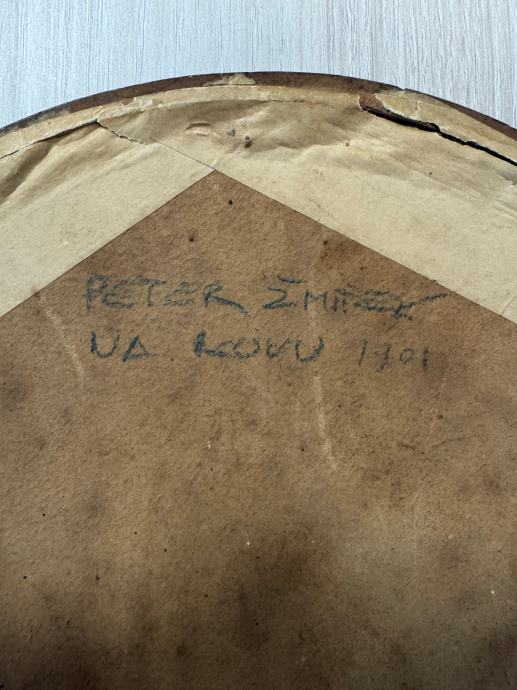 PETER ŽMITEK
NA LOVU 1901